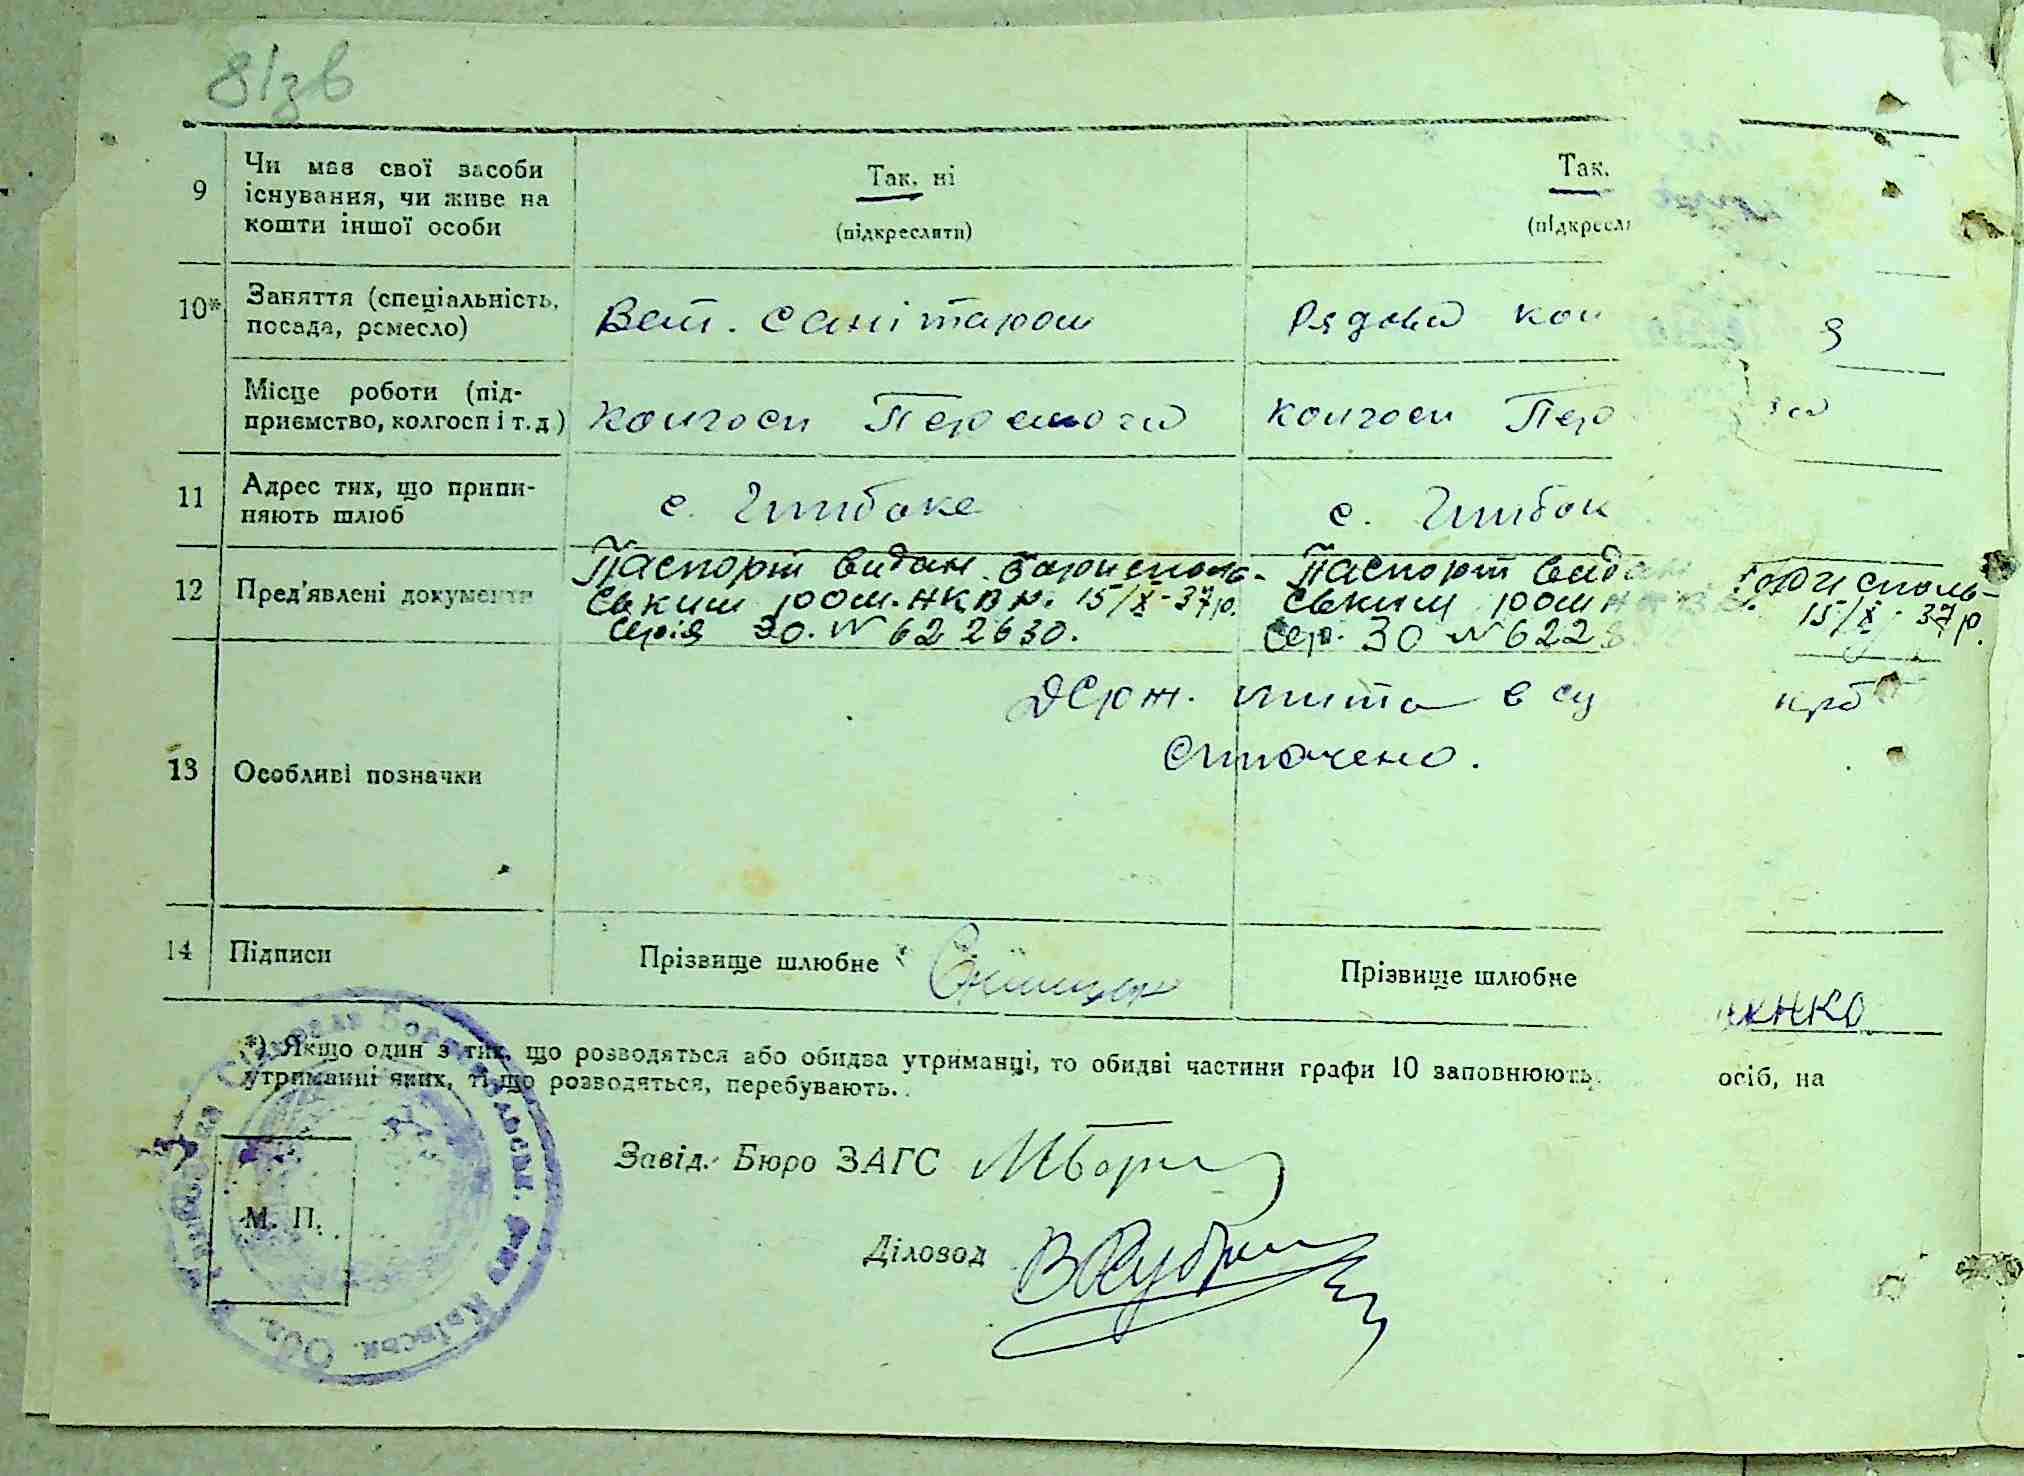 81зв
9 Чи має свої засоби існування, чи живе на кошти іншої особи
Так, ні
(підкреслити)
Так.
(підкресл
10* Заняття (спеціальність, посада, ремесло)
Вет. санітаром
Рядова кол
я
Місце роботи (підприємство, колгосп і т. д.)
колгосп Перемога
колгосп Пер
га
11 Адрес тих, що припиняють шлюб
с. Глибоке
с. Глибок
12 Пред'явлені документи
Паспорт видан. Бориспольським рош. НКВД. 15/X-37р.
Серія ЗО. № 622630.
Паспорт видан
ським рош
15/X-37р.
Сер. ЗО № 622
13 Особливі позначки
Держ. мита в су
крб
сплочено.
14 Підписи
Прізвище шлюбне
Прізвище шлюбне
енко
*) Якщо один з тих, що розводяться або обидва утриманці, то обидві частини графи 10 заповнюють
осіб, на
утриманні яких, ті що розводяться, перебувають.
Завід. Бюро ЗАГС
Діловод
М. П.
Київськ. Обл.